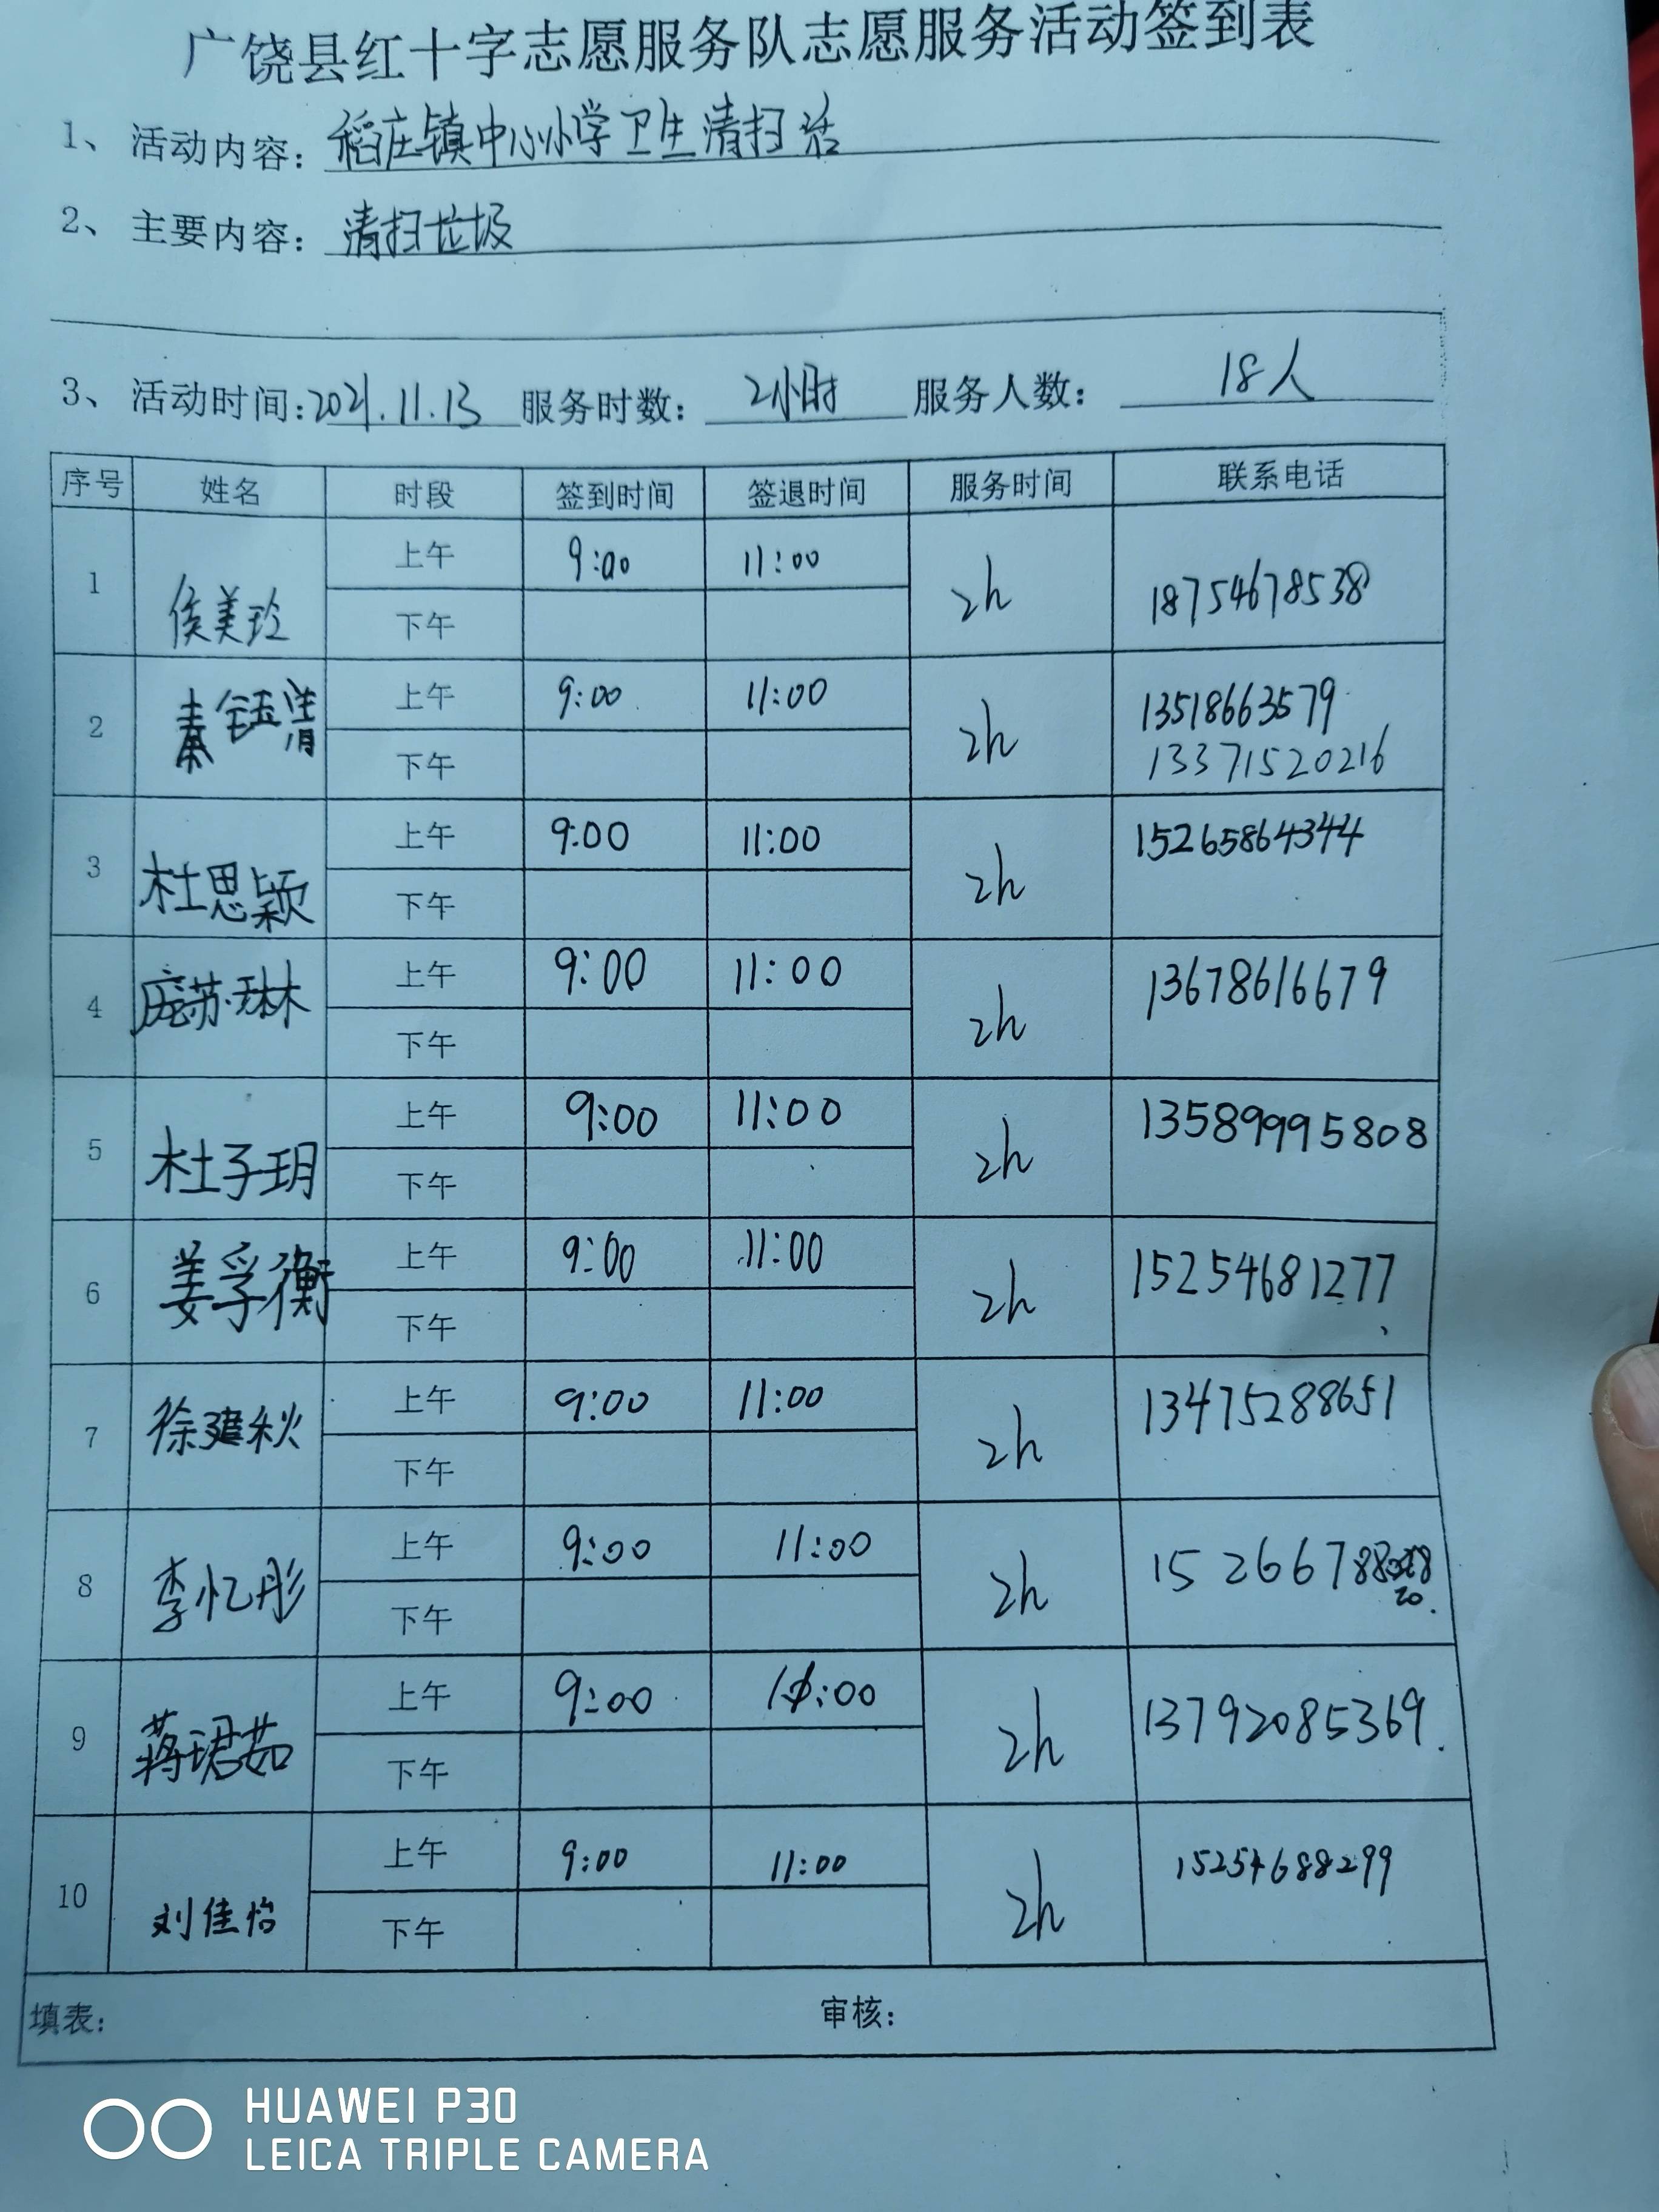 广饶县红十字志愿服务队志愿服务活动签到表
1、活动内容：稻庄镇中心小学卫生清扫活
2、主要内容：清扫垃圾
3、活动时间：2021.11.13 服务时数：2小时 服务人数：18人
序号 姓名 时段 签到时间 签退时间 服务时间 联系电话
1 侯美玲 上午 9:00 11:00 2h 18754678538
下午
2 秦钰清 上午 9:00 11:00 2h 13518663579
下午 13371520216
3 杜思颖 上午 9:00 11:00 2h 15265864344
下午
4 庞苏琳 上午 9:00 11:00 2h 13678616679
下午
5 杜子玥 上午 9:00 11:00 2h 13589995808
下午
6 姜孚衡 上午 9:00 11:00 2h 15254681277
下午
7 徐建秋 上午 9:00 11:00 2h 13475288651
下午
8 李忆彤 上午 9:00 11:00 2h
下午
9 蒋珺茹 上午 9:00 11:00 2h 13792085369
下午
10 刘佳怡 上午 9:00 11:00 2h 15254688299
下午
填表： 审核：
HUAWEI P30
LEICA TRIPLE CAMERA